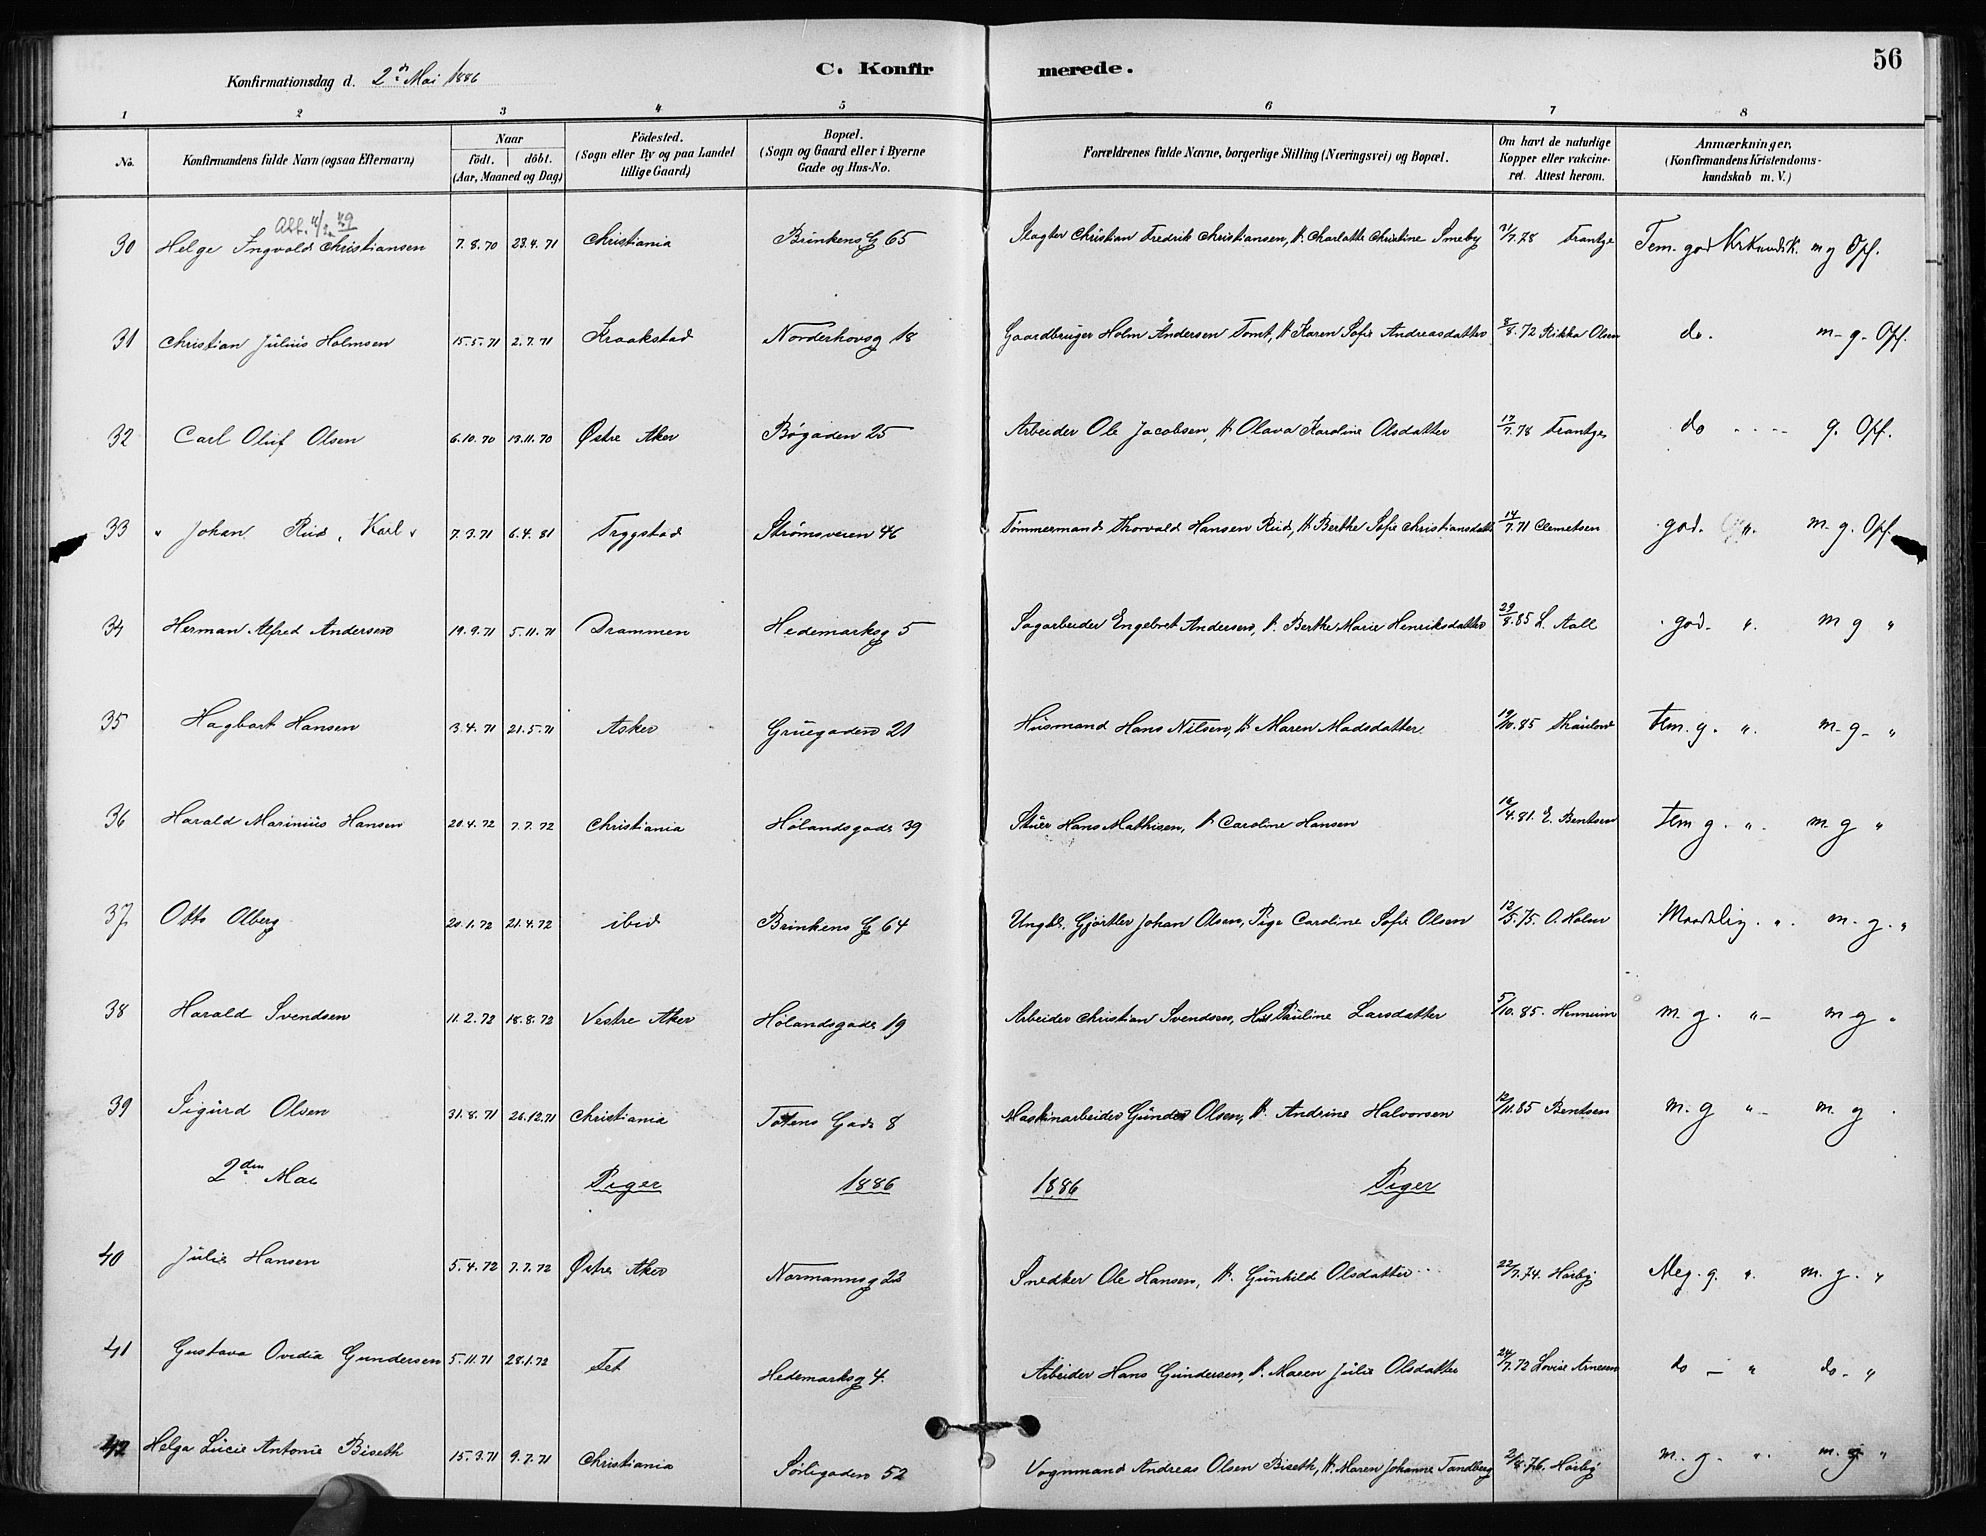 56
Konfirmationsdag d. 2den Mai 1886
C. Konfirmerede.
1 2 3 4 5 6 7 8
No. Konfirmandens fulde Navn (ogsaa Efternavn) Naar födt. döbt. (Aar, Maaned og Dag) Födested. (Sogn eller By og paa Landet tillige Gaard) Bopæl. (Sogn og Gaard eller i Byerne Gade og Hus-No. Forældrenes fulde Navne, borgerlige Stilling (Næringsvei) og Bopæl. Om havt de naturlige Kopper eller vakcineret. Attest herom. Anmærkninger. (Konfirmandens Kristendomskundskab m. V.)
30 Helge Ingvald Christiansen 7.8.70 23.4.71 Christiania Brinkens G 65 Slagter Christian Fredrik Christiansen, H. Charlotte Christine Smeby 17/7.78 Frantze Tem. god Krkundsk. m g Opf.
31 Christian Julius Holmsen 15.5.71 2.7.71 Kraakstad Norderhovsg 18 Gaardbruger Holm Andersen Tomt, H Karen Sofie Andreasdatter 8/8.72 Rikka Olsen do. m-g. Opf.
32 Carl Oluf Olsen 6.10.70 13.11.70 Østre Aker Bøgaden 25 Arbeider Ole Jacobsen, H Olava Karoline Olsdatter 17/7.78 Frantze do g. Opf.
33 " Johan Rud, Karl " 7.3.71 6.4.81 Trygstad Strømsveien 46 Tømmermand Thorvald Hansen Rud, H Berthe Sofie Christiansdatt 14/7.71 Clemetsen god. ". m. g. Opf.
34 Herman Alfred Andersen 19.9.71 5.11.71 Drammen Hedemarksg 5 Sagarbeider Engebret Andersen, H. Berthe Marie Henriksdatter 29/8.85 L. Aall god. ". m g "
35 Hagbart Hansen 3.4.71 21.5.71 Asker Gruegaden 21 Husmand Hans Nilsen, H Maren Madsdatter 19/10.85 tem. g. ". m-g- "
36 Harald Marinius Hansen 20.4.72 7.7.72 Christiania Hølandsgade 39 Hans Mathisen, H Caroline Hansen 18/4.81. E. Bentsen tem g. ". m. g "
37 Otto Olberg 20.1.72 21.4.72 ibid Brinkens G 64 Ungk. Gjørtler Johan Olsen, Pige Caroline Sofie Olsen 12/5.75. O. Holm Maadelig. ". m. g. "
38 Harald Svendsen 11.2.72 18.8.72 Vestre Aker Hølandsgade 19 Arbeider Christian Svendsen, Hus Pauline Larsdatter 5/10.85. m. g. "- m g "
39 Sigurd Olsen 31.8.71 26.12.71 Christiania Totens Gade 8 Maskinarbeider Gunder Olsen, H. Andrine Halvorsen 12/11.85 Bentsen m. g "- m. g.
2den Mai Piger 1886 1886 Piger
40 Julie Hansen 5.4.72 7.7.72 Østre Aker Normannsg 23 Snedker Ole Hansen, H. Gunhild Olsdatter 22/7.74. Hørbÿ Meg. g. ". m. g. "
41 Gustava Ovidia Gundersen 5.11.71 28.1.72 Fet Hedemarksg 4. Arbeider Hans Gundersen, H. Maren Julie Olsdatter 24/7.72 Lovise Arnesen do - " do. "
42 Helga Lucie Antonie Biseth 15.3.71 9.7.71 Christiania Sørligaden 52 Vognmand Andreas Olsen Biseth, H. Maren Johanne Tandberg 2/8.76. Hørbÿ m. g. ". m. g "